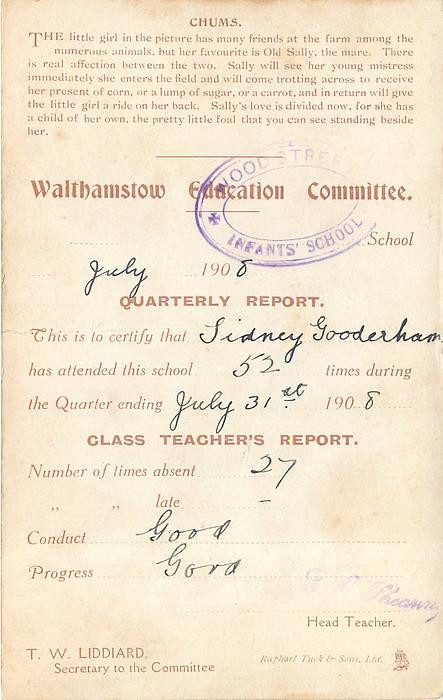 CHUMS.
THE little girl in the picture has many friends at the farm among the
numerous animals, but her favourite is Old Sally, the mare. There
is real affection between the two. Sally will see her young mistress
immediately she enters the field and will come trotting across to receive
her present of corn, or a lump of sugar, or a carrot, and in return will give
the little girl a ride on her back. Sally's love is divided now, for she has
a child of her own, the pretty little foal that you can see standing beside
her.
Walthamstow Education Committee.
WOOD STREE
INFANTS' SCHOOL
School
July 1908
QUARTERLY REPORT.
This is to certify that Sidney Gooderham
has attended this school 52 times during
the Quarter ending July 31st 1908
CLASS TEACHER'S REPORT.
Number of times absent 27
„ „ late –
Conduct Good
Progress Good
Head Teacher.
T. W. LIDDIARD,
Secretary to the Committee
Raphael Tuck & Sons, Ltd.